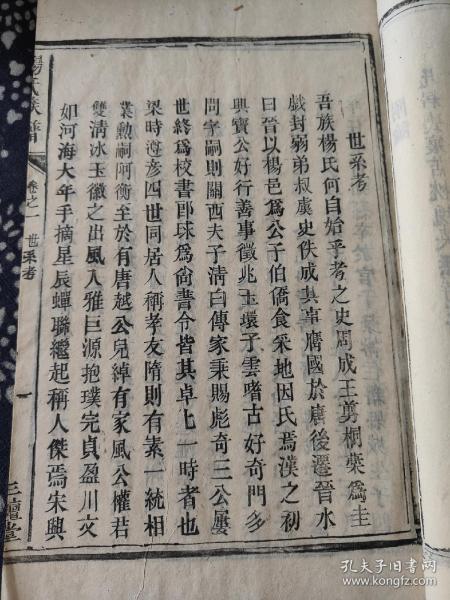 世系考
吾族楊氏何自始乎考之史周成王剪桐葉爲圭
戲封弱弟叔虞史佚成其事膺國於唐後遷晉水
曰晉以楊邑爲公子伯僑食采地因氏焉漢之初
興寶公好行善事徵兆玉環子雲嗜古好奇門多
問字嗣則關西夫子清白傳家秉賜彪奇三公屢
世終爲校書郎球爲尚書令皆其卓卓一時者也
梁時遵彥四世同居人稱孝友隋則有素一統相
業勲嗣阿衡至於有唐越公兒綽有家風公權若
雙清冰玉徽之出風入雅巨源抱璞完貞盈川文
如河海大年手摘星辰蟬聯繼起稱人傑焉宋興
楊氏族譜
卷之一
世系考
三鱣堂
孔夫子旧书网